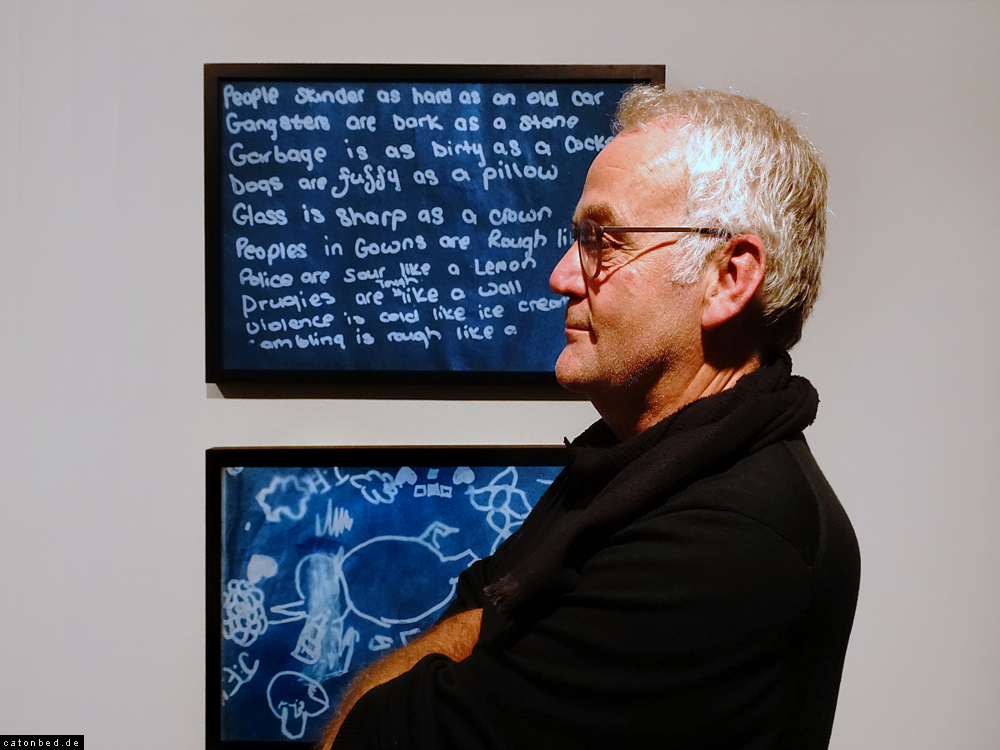 People skinder as hard as an old car
Gangsters are Dark as a stone
Garbage is as Dirty as a
Dogs are fuffy as a pillow
Glass is sharp as a crown
Peoples in Gowns are Rough
Police are sour like a Lemon
Drugies are tough like a wall
Violence is cold like ice cream
ambling is rough like a
catonbed.de